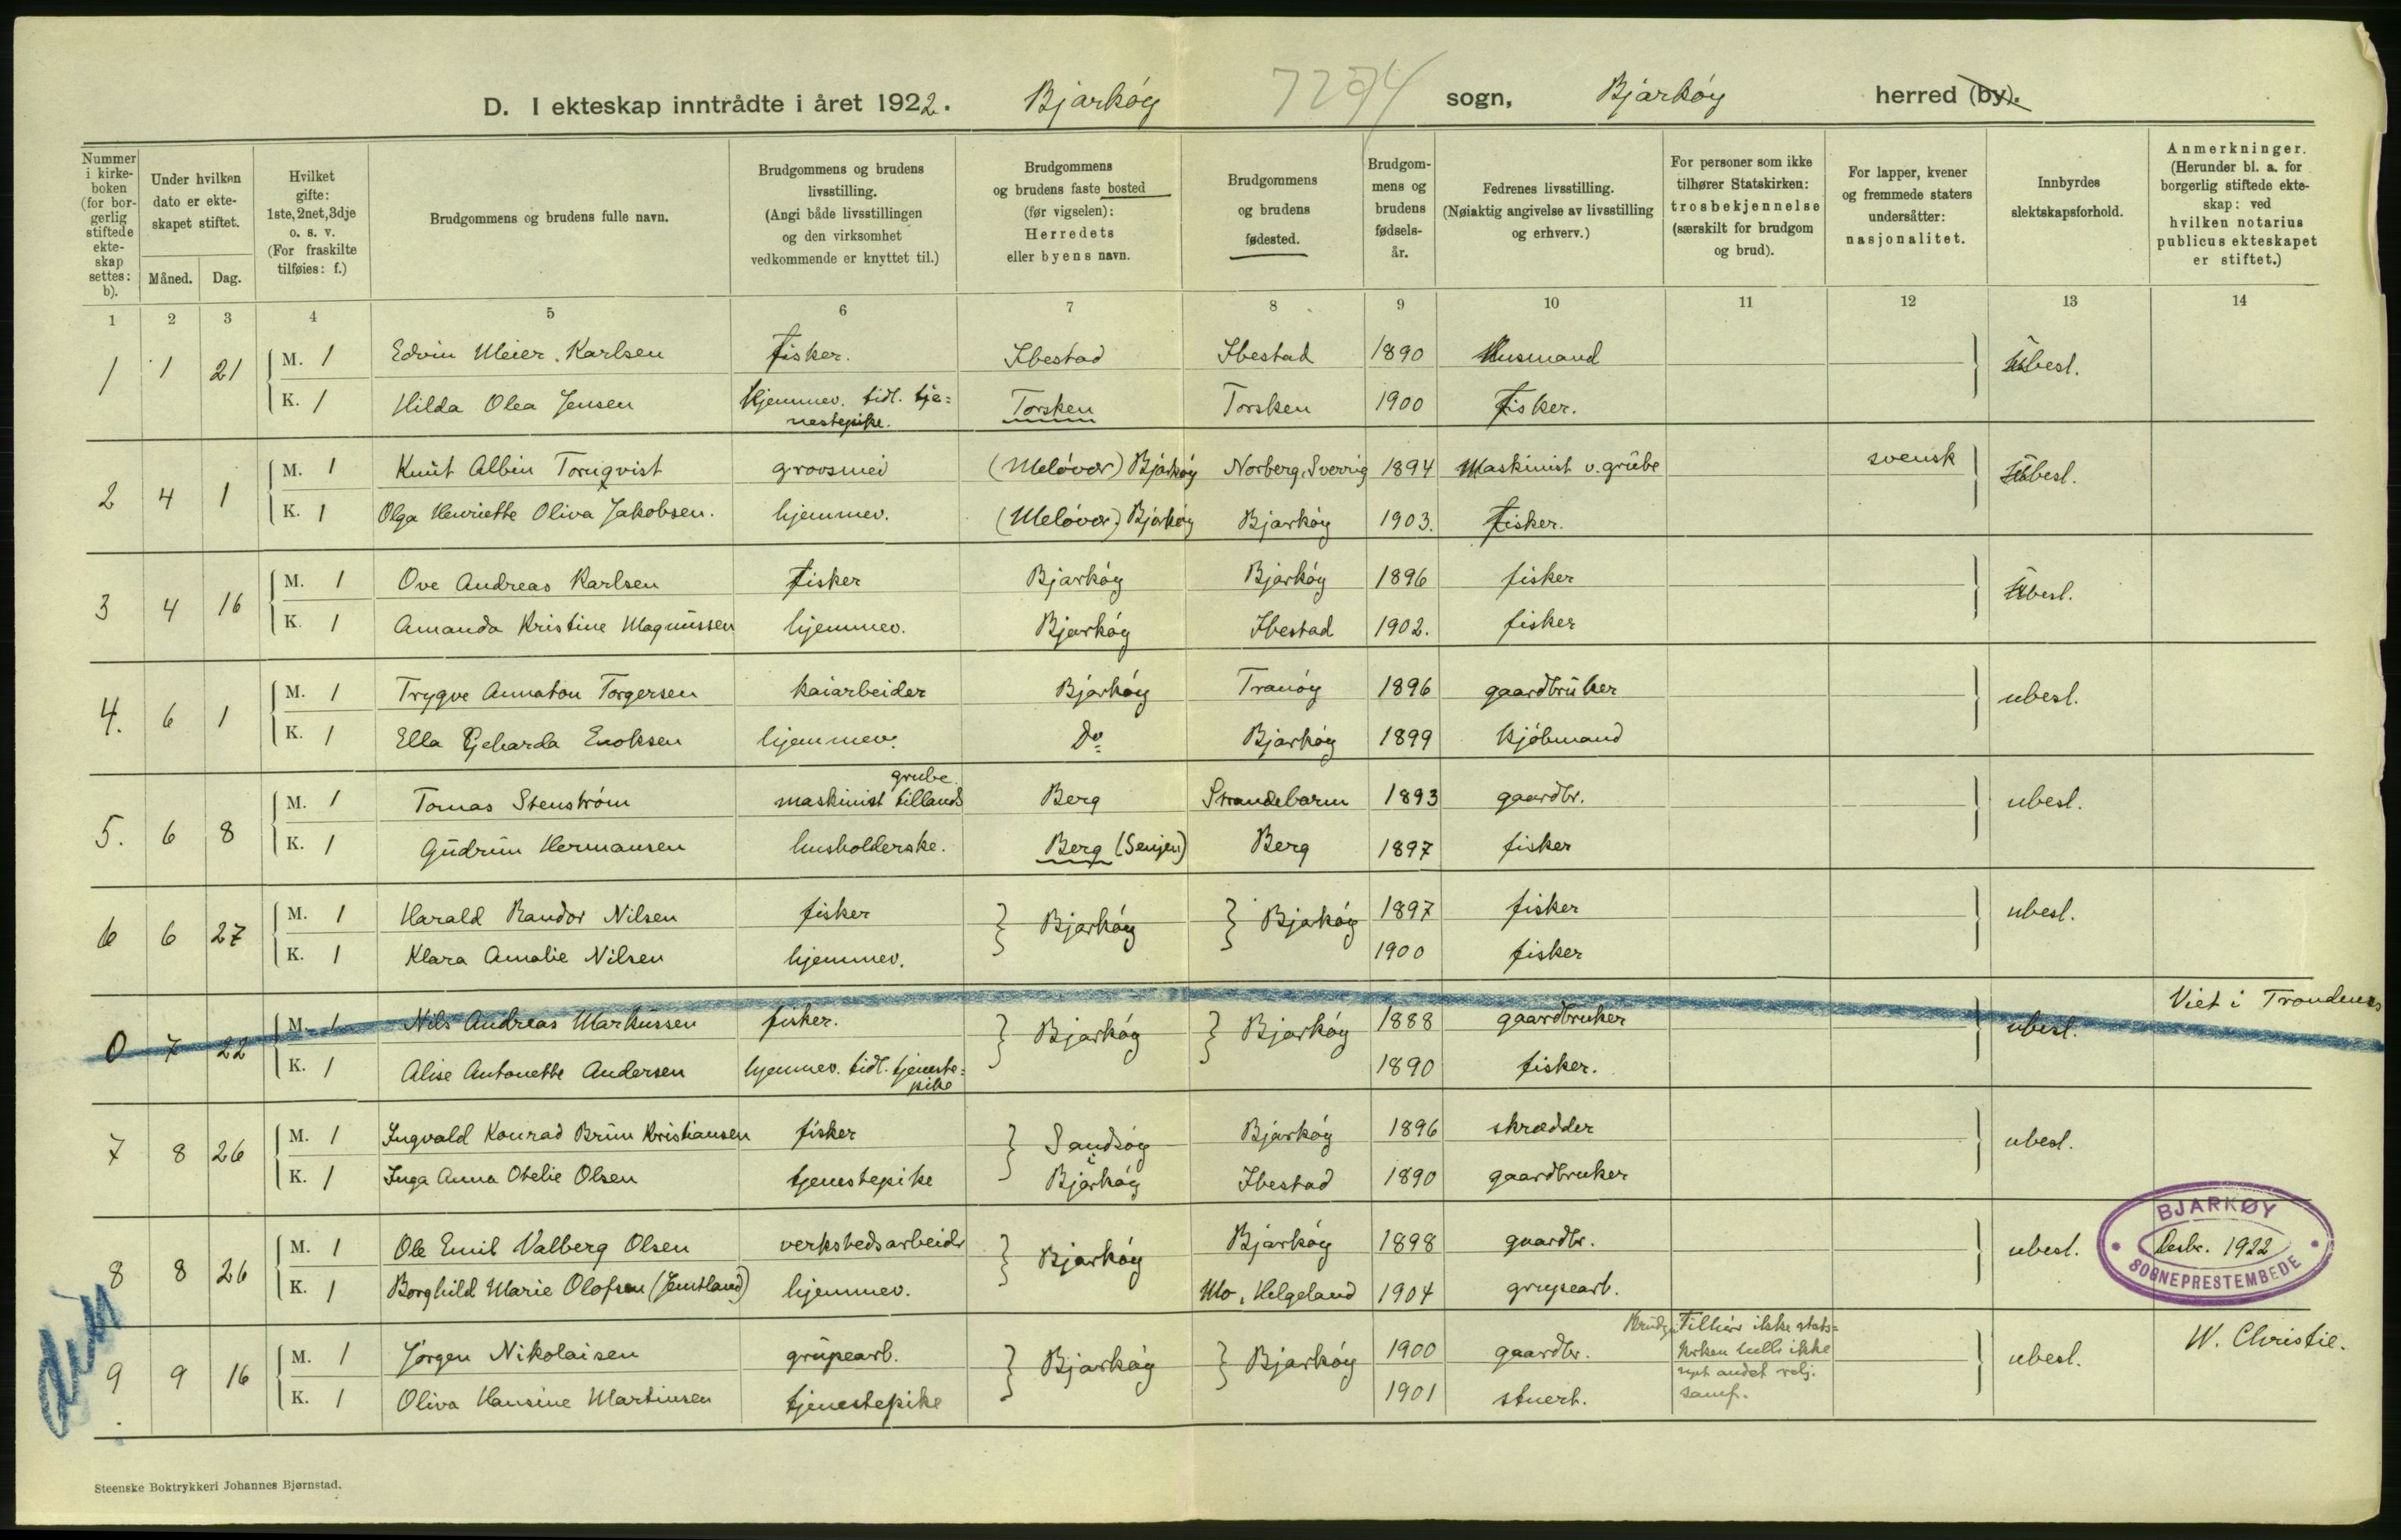 D. I ekteskap inntrådte i året 1922. Bjarkóy 7294 sogn, Bjarkóy herred (by).
Nummer i kirkeboken (for borgerlig stiftede ekteskap settes: b).
Under hvilken dato er ekteskapet stiftet.
Måned. Dag.
Hvilket gifte: 1ste, 2net, 3dje o. s. v. (For fraskilte tilføies: f.)
Brudgommens og brudens fulle navn.
Brudgommens og brudens livsstilling. (Angi både livsstillingen og den virksomhet vedkommende er knyttet til.)
Brudgommens og brudens faste bosted (før vigselen): Herredets eller byens navn.
Brudgommens og brudens fødested.
Brudgommens og brudens fødselsår.
Fedrenes livsstilling. (Nøiaktig angivelse av livsstilling og erhverv.)
For personer som ikke tilhører Statskirken: trosbekjennelse (særskilt for brudgom og brud).
For lapper, kvener og fremmede staters undersåtter: nasjonalitet.
Innbyrdes slektskapsforhold.
Anmerkninger. (Herunder bl. a. for borgerlig stiftede ekteskap: ved hvilken notarius publicus ekteskapet er stiftet.)
1 2 3 4 5 6 7 8 9 10 11 12 13 14
1 1 21 M. 1 Edvin Meier Karlsen fisker. Ibestad Ibestad 1890 Husmand ubesl.
K. 1 Hilda Olea Jensen Hjemmev. tidl. tje=
nestepike. Torsken Torsken 1900 fisker.
2 4 1 M. 1 Knut Albin Tornqvist grovsmed (Meløvær) Bjarkóy Norberg, Sverrig 1894 Maskinist v. grube svensk ubesl.
K. 1 Olga Henriette Oliva Jakobsen. hjemmev. (Meløvær) Bjarkóy Bjarkóy 1903. fisker.
3 4 16 M. 1 Ove Andreas Karlsen fisker Bjarkóy Bjarkóy 1896 fisker ubesl.
K. 1 Amanda Kristine Magnussen hjemmev. Bjarkóy Ibestad 1902. fisker
4. 6 1 M. 1 Trygve Annaton Torgersen kaiarbeider Bjarkóy Tranóy 1896 gaardbruker ubesl.
K. 1 Ella Enoksen hjemmev. Do Bjarkóy 1899 kjóbmand
grube
5. 6 8 M. 1 Tomas Stenstróm maskinist Berg Strandebarm 1893 gaardbr. ubesl.
K. 1 Gudrun Hermansen husholderske. Berg (Senjen) Berg 1897 fisker
6 6 27 M. 1 Harald Randor Nilsen fisker Bjarkóy Bjakóy 1897 fisker ubesl.
K. 1 Klara Amalie Nilsen hjemmev. 1900 fisker
Viet i Trondenes
0 7 22 M. 1 Nils Andreas Markussen fisker. Bjarkóy Bjarkóy 1888 gaardbruker ubesl.
K. 1 Alise Antonette Andersen hjemmev. tidl. tjeneste=
pike 1890 fisker.
7 8 26 M. 1 Ingvald Konrad Brun Kristiansen fisker Sandsóy Bjarkóy 1896 skrædder ubesl.
i
K. 1 Inga Anna Otelie Olsen tjenestepike Bjarkóy Ibestad 1890 gaardbruker
8 8 26 M. 1 Ole Emil Valberg Olsen verkstedsarbeider Bjarkóy Bjarkóy 1898 gaardbr. ubesl.
K. 1 Borghild Marie Olofsen (Jemtland) hjemmev. Mo, Helgeland 1904 grupearb.
BJARKØY
Desbr. 1922
SOGNEPRESTEMBEDE
9 9 16 M. 1 Jórgen Nikolaisen grupearb. Bjarkóy Bjarkóy 1900 gaardbr. ubesl. W. Christie.
Brudg. Tilhór ikke stats=
kirken heller ikke
noget andet relj.
samf.
K. 1 Oliva Hansine Martinsen tjenestepike 1901 stuert.
Steenske Boktrykkeri Johannes Bjørnstad.